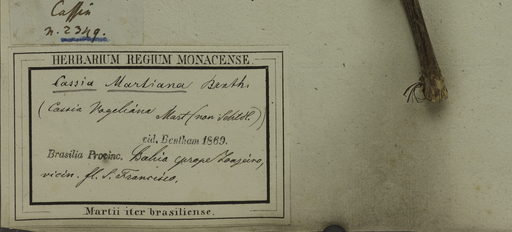 Cassia
n. 2349.
HERBARIUM REGIUM MONACENSE.
Cassia Martiana Benth.
(Cassia Vogeliana Mart (non Schldl.))
vid. Bentham 1869.
Brasilia Provinc. Bahia prope Joazeiro,
vicin. fl. S. Francisco.
Martii iter brasiliense.